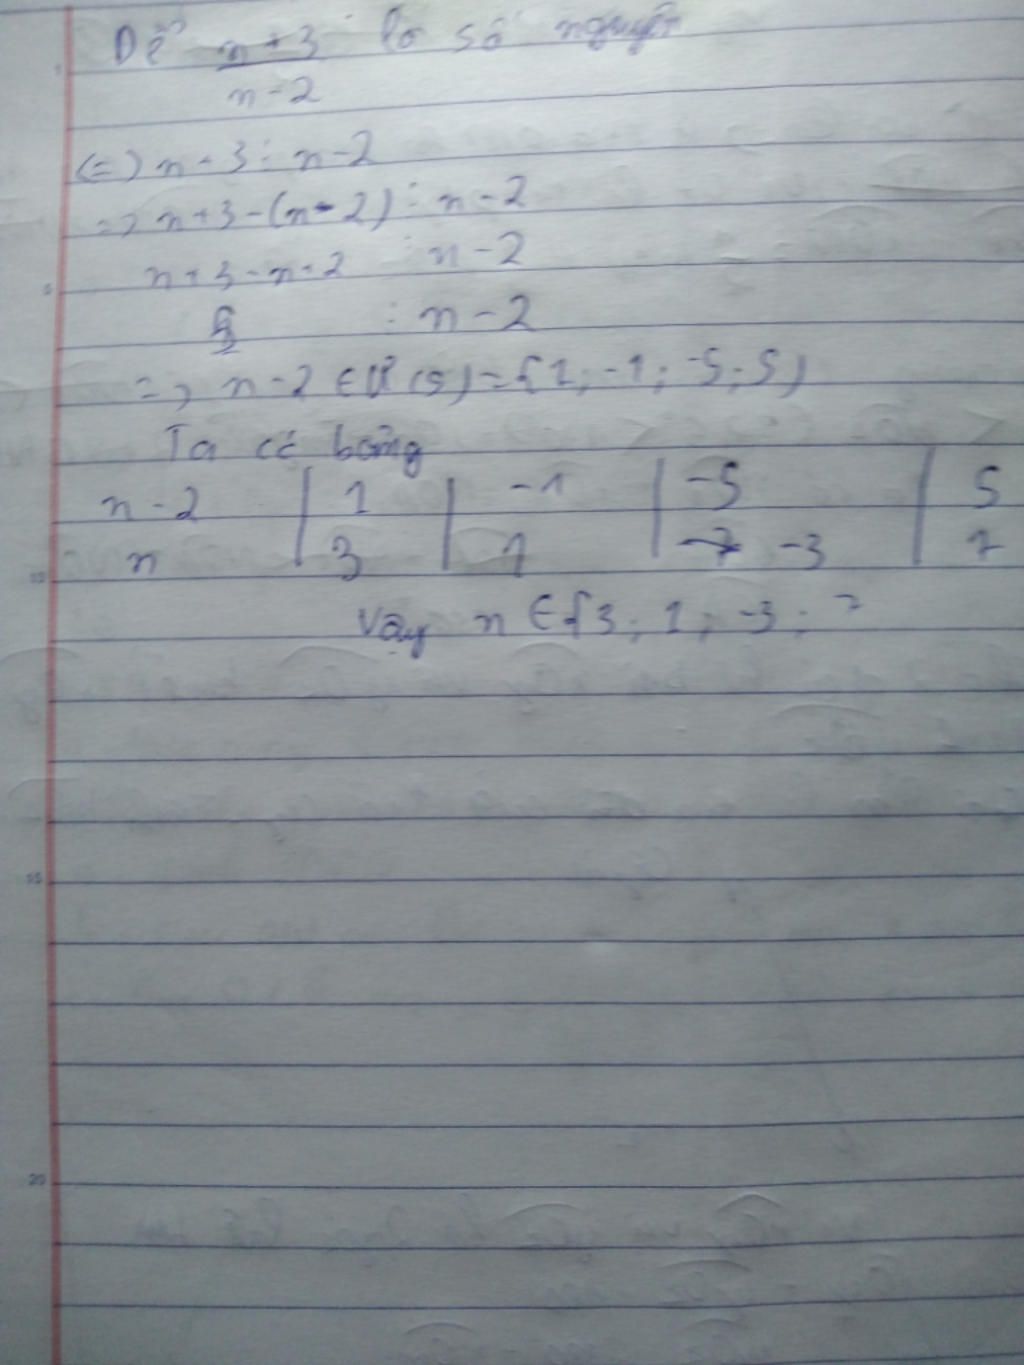 Để n+3 là số nguyên
n-2
(=) n - 3 ⋮ n-2
=> n+3-(n-2) ⋮ n-2
n+3-n+2 ⋮ n-2
5 ⋮ n-2
=> n-2 ∈ Ư(5) = {1; -1; -5; 5}
Ta có bảng
n-2 | 1 | -1 | -5 | 5
n | 3 | 1 | -7 -3 | 7
Vậy n ∈ {3; 1; -3; 7